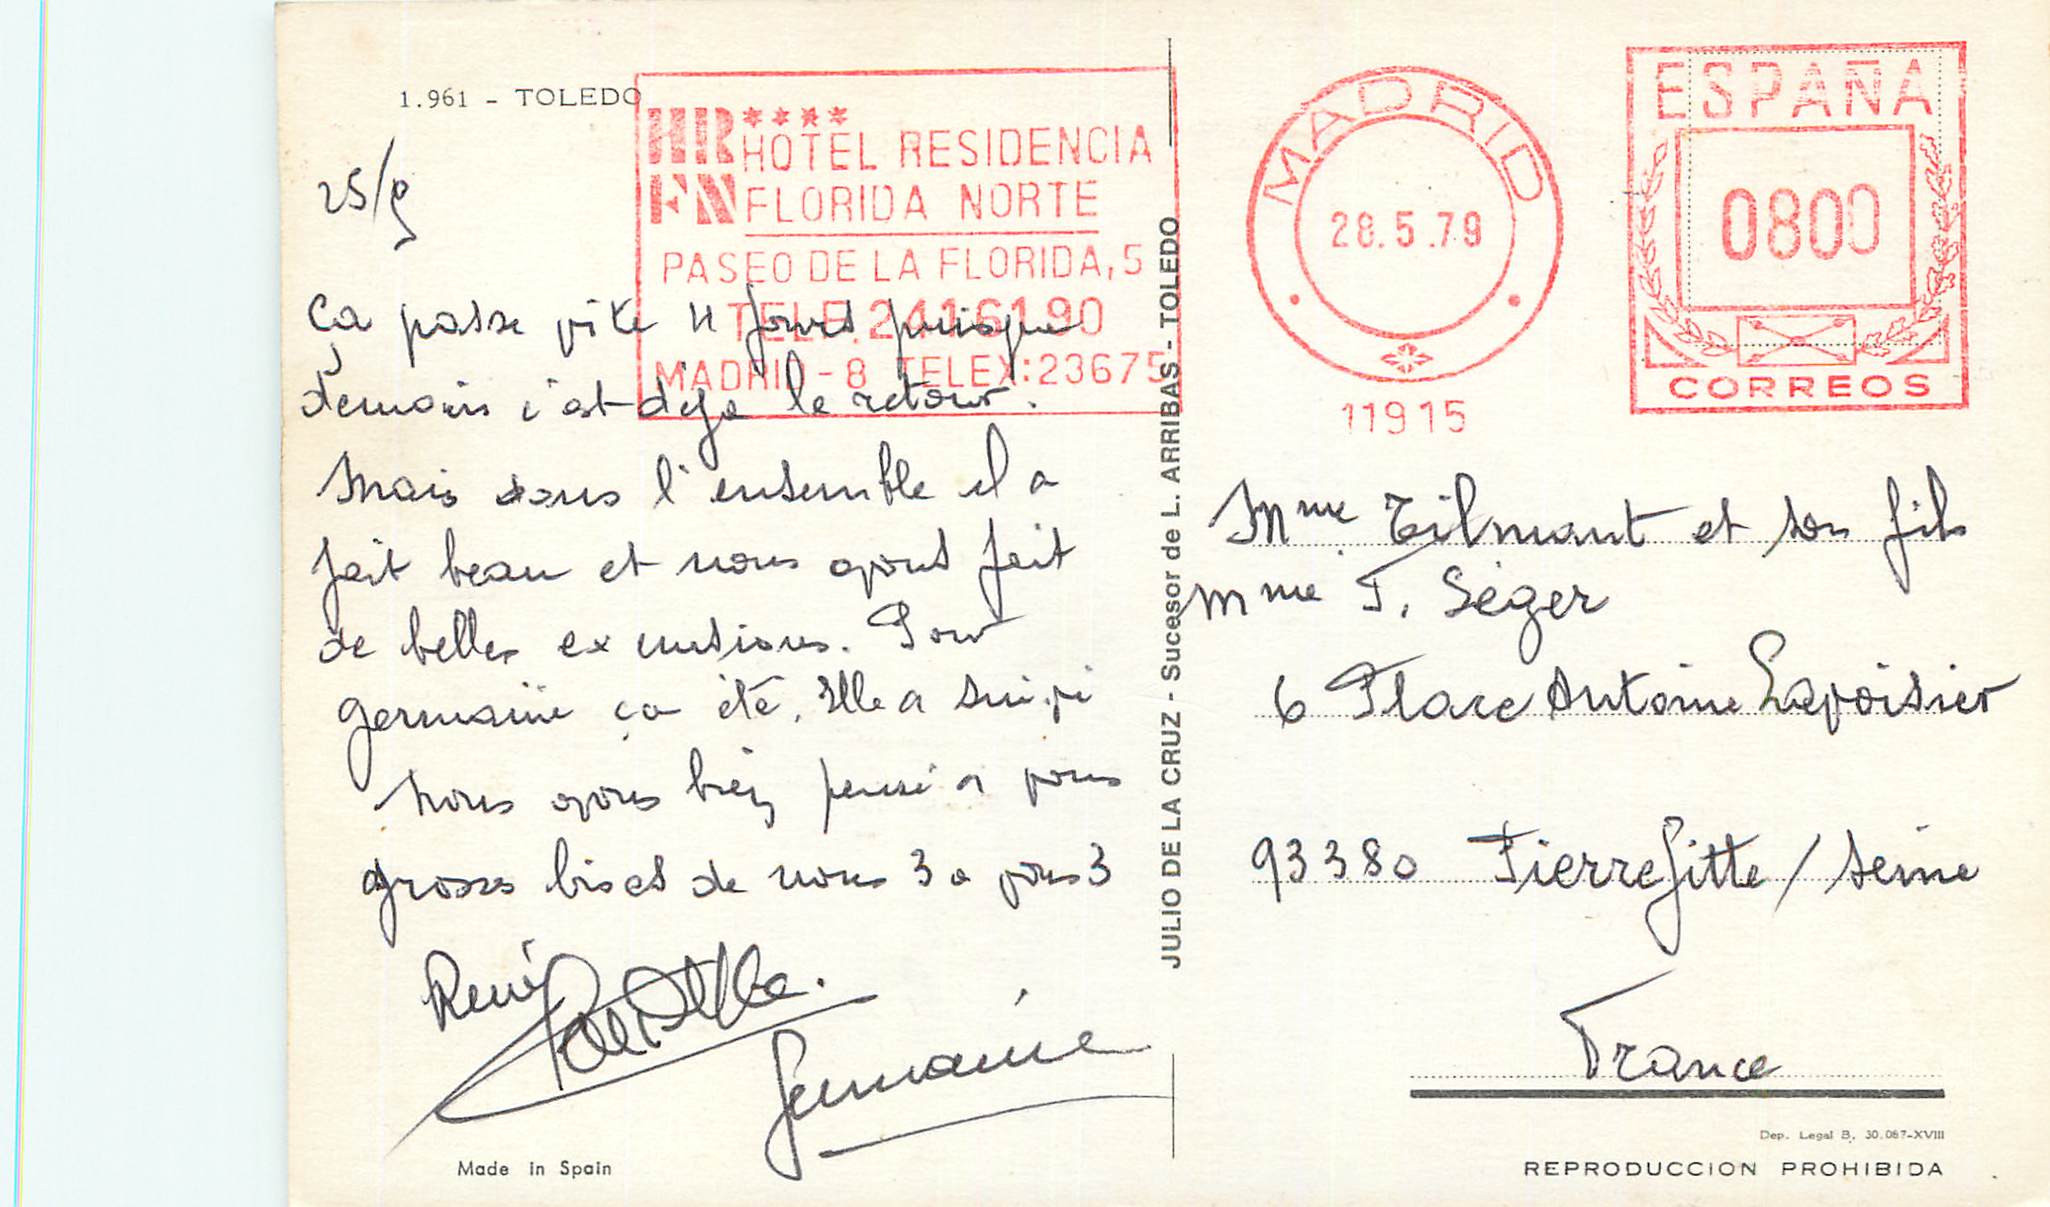 1.961 - TOLEDO
25/5
Ça passe vite 11 jours puisque
demain c'est déjà le retour.
Mais dans l'ensemble il a
fait beau et nous avons fait
de belles excursions. Pour
Germaine ça été. Elle a suivi
Nous avons bien pensé a vous
grosses bises de nous 3 a vous 3
René
Germaine
Made in Spain
HR
FN
****
HOTEL RESIDENCIA
FLORIDA NORTE
PASEO DE LA FLORIDA, 5
TELF. 2416190
MADRID - 8 TELEX: 23675
JULIO DE LA CRUZ - Sucesor de L. ARRIBAS - TOLEDO
MADRID
28.5.79
11915
ESPAÑA
0800
CORREOS
Mme Tilmant et son fils
Mme F. Séger
6 Place Antoine Lavoisier
93380 Pierrefitte / Seine
France
Dep. Legal B. 30.087-XVIII
REPRODUCCION PROHIBIDA